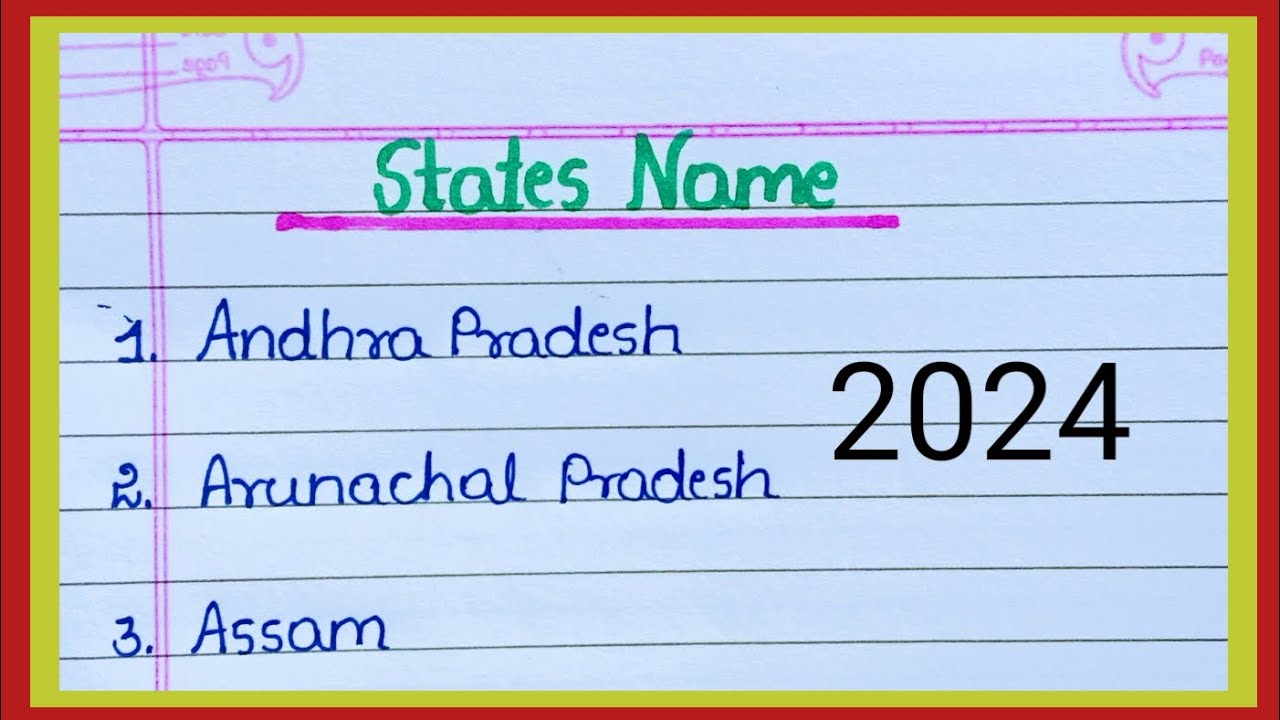 Page
States Name
1. Andhra Pradesh
2024
2. Arunachal Pradesh
3. Assam